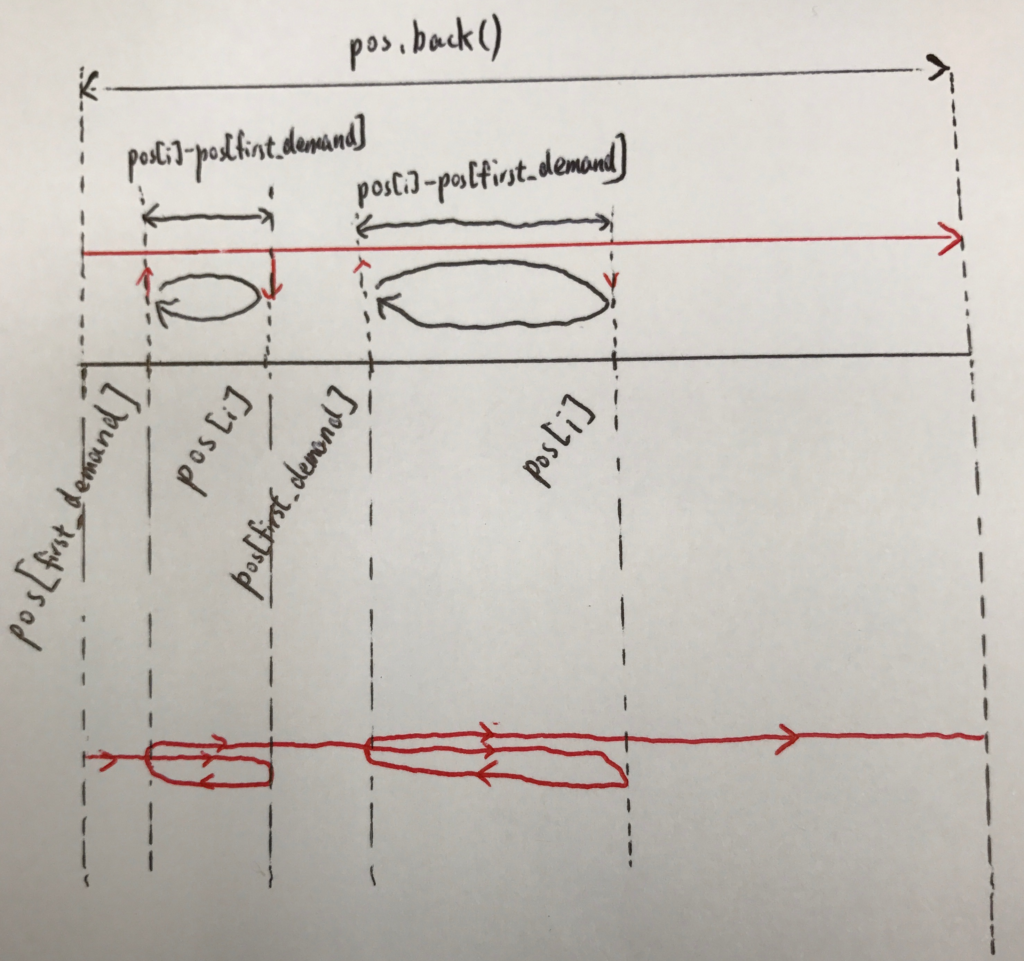 pos.back()
pos[i]-pos[first_demand]
pos[i]-pos[first_demand]
pos[first_demand]
pos[i]
pos[first_demand]
pos[i]